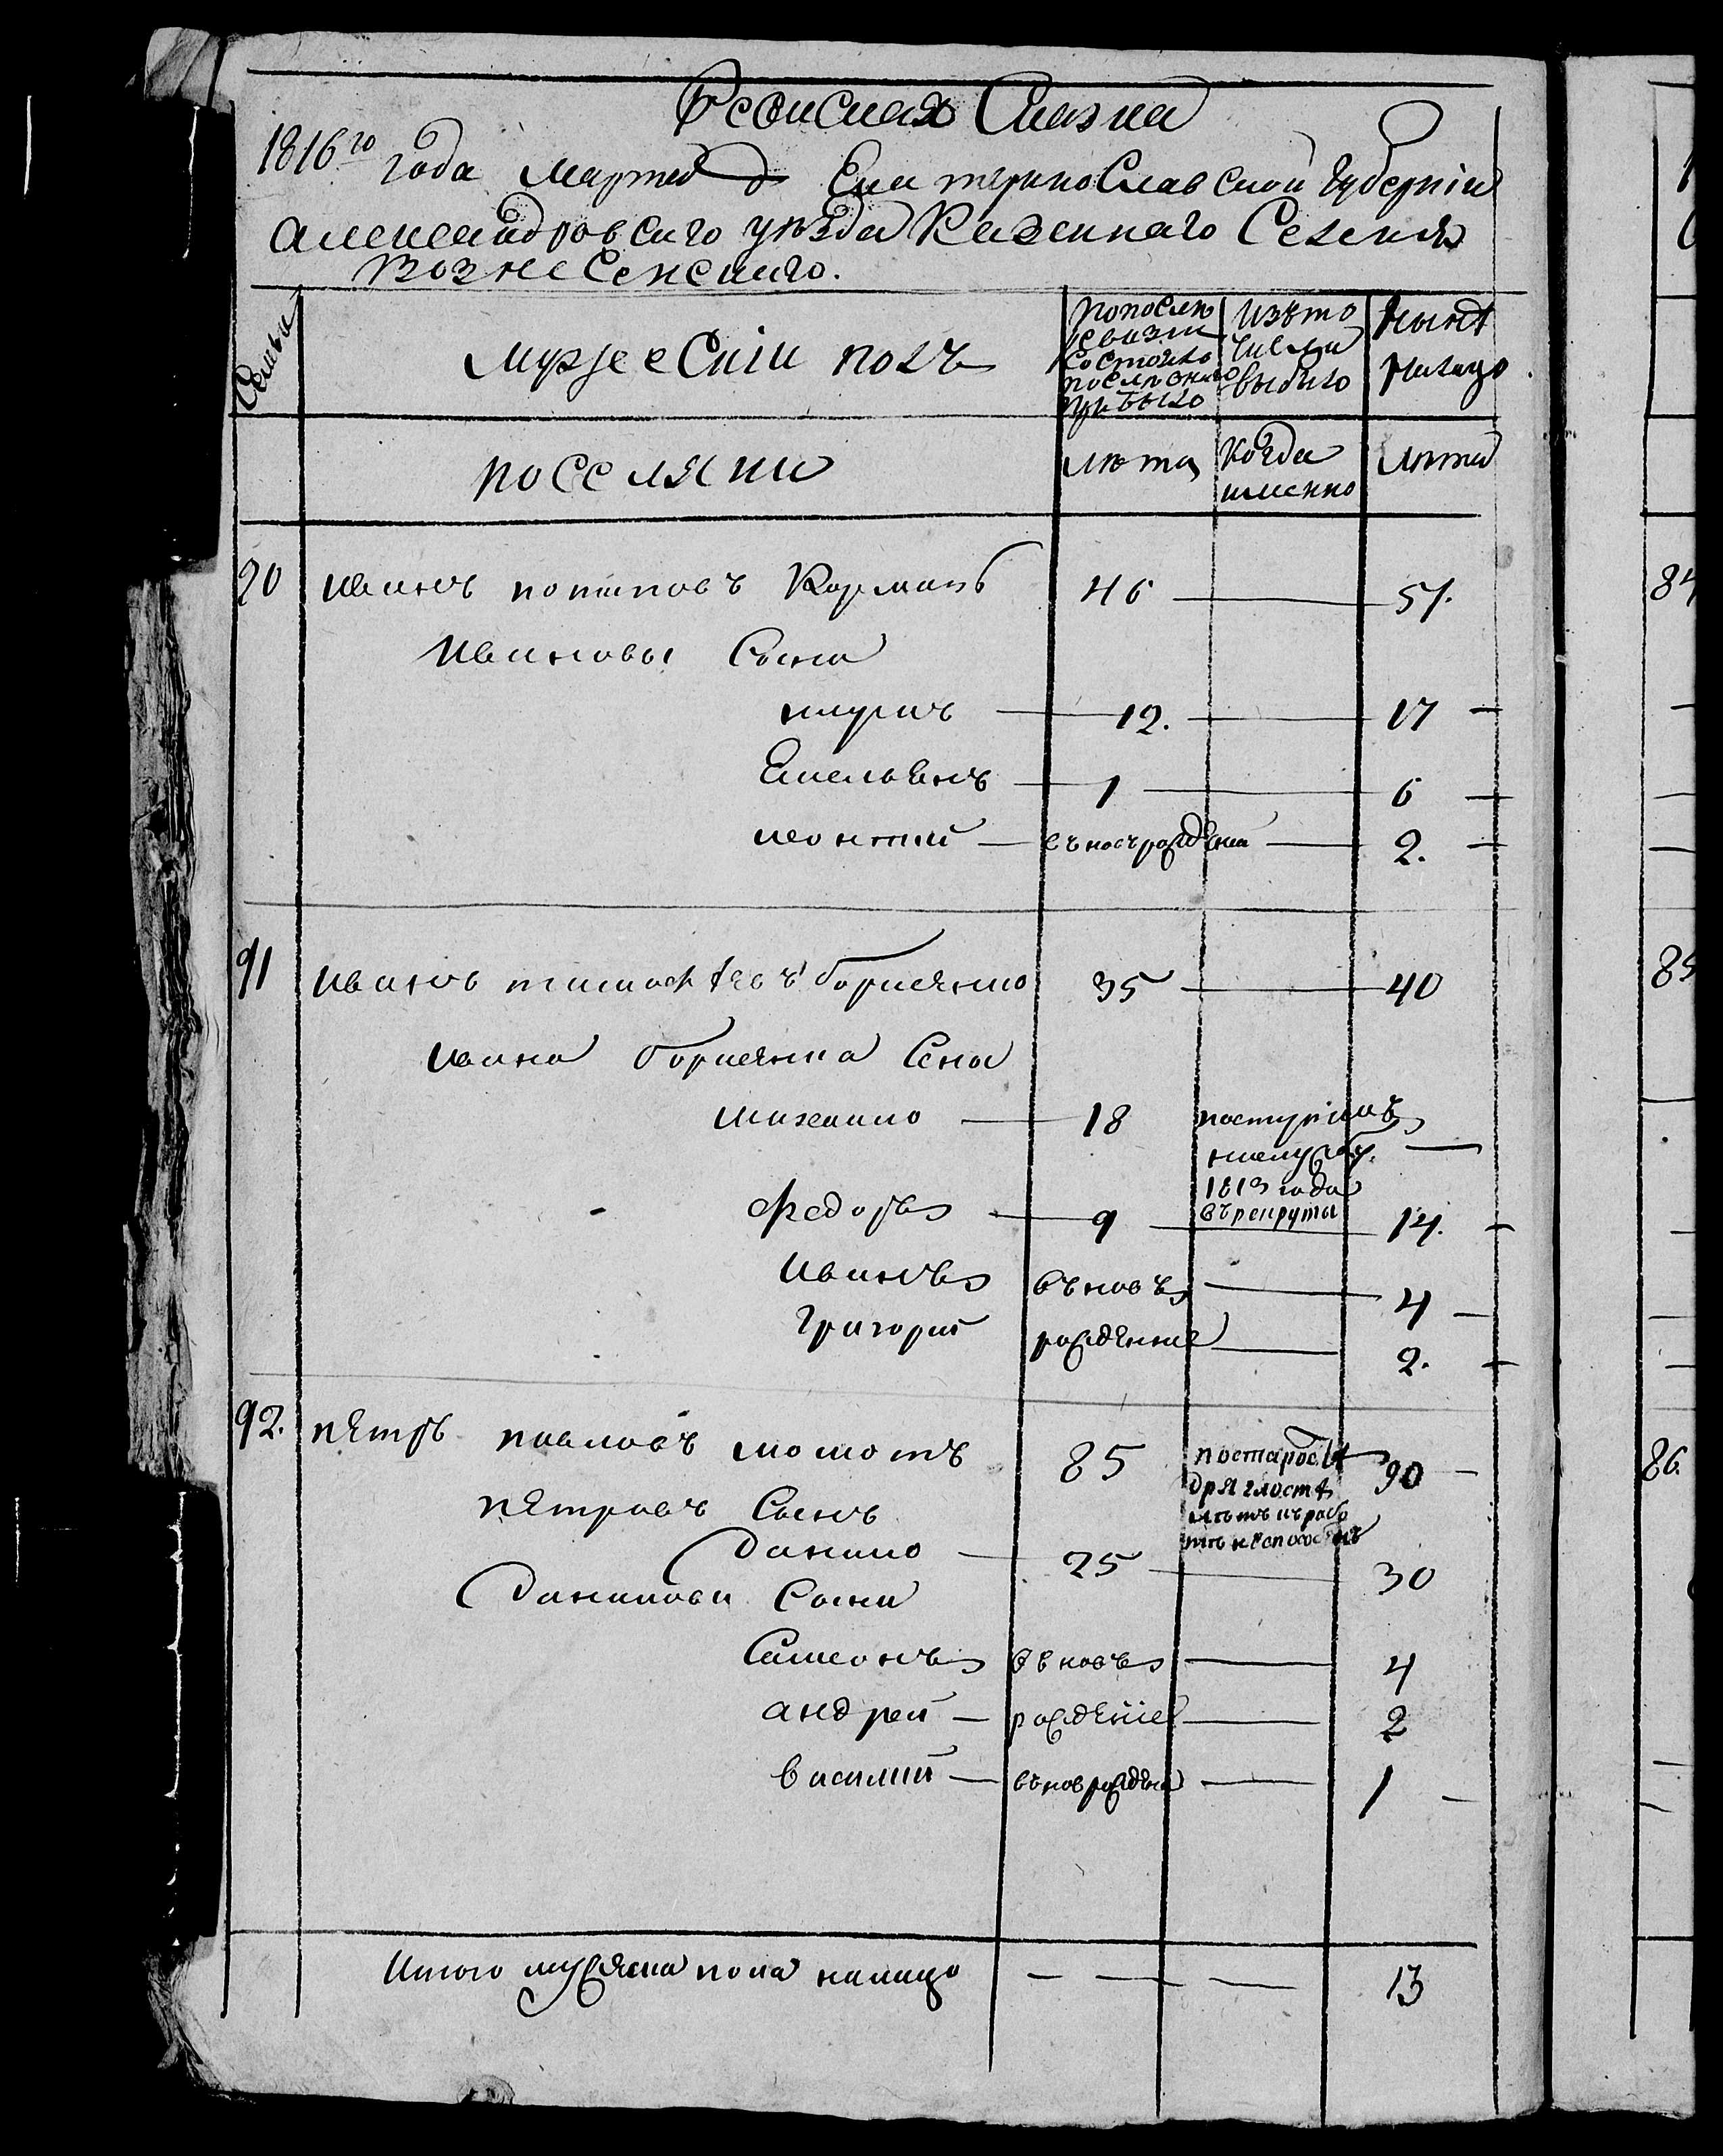 Ревиская Сказка
1816го года марта д Екатеринославской губернiи
александровскаго уезда Казеннаго Селения
вознесенскаго.
Семьи
мужескiй полъ
по после
ревизи
состояло
и после оной
прибыло
Изъ то
числа
выбыло
Ныне
налицо
поселяни
лета
Когда
именно
лета
90 иванъ потаповъ Корманъ 46 51.
Ивановы Сына
12. 17
Емельянъ 1 6
леонтий вьновърожденъ 2.
91 иванъ тимофеевъ борисенко 35 40
ивана борисенка Сена
михаило 18 поступилъ
1813 года
въ рекруты
федоръ 9 14.
Иванъ вьновъ 4
григорий рожденные 2.
92. петръ павловъ момотъ 85 90
по старости
дряглости
летъ къ рабо
те неспособенъ
петровъ Сынъ
данило 25 30
даниловы Сына
Симеонъ вьновъ 4
андрей рожденiе 2
василий вьноврожденъ 1
Итого мужеска пола налицо 13
84
85
86.